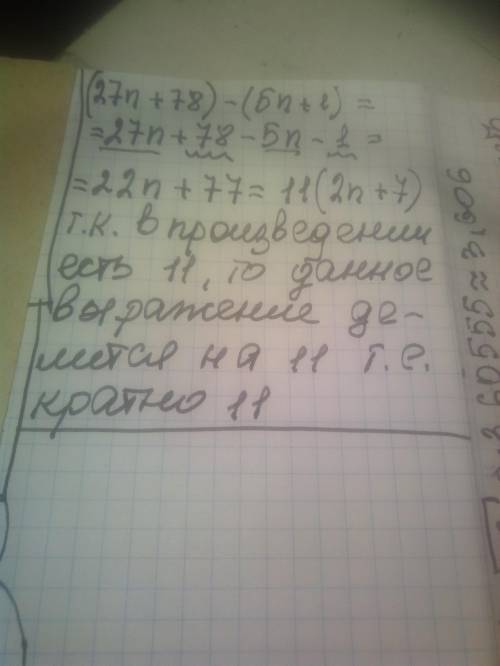 (27n+78)-(5n+1)=
=27n+78-5n-1=
=22n+77=11(2n+7)
т.к. в произведении
есть 11, то данное
выражение де-
лится на 11 т.е.
кратно 11
3,60555≈3,606